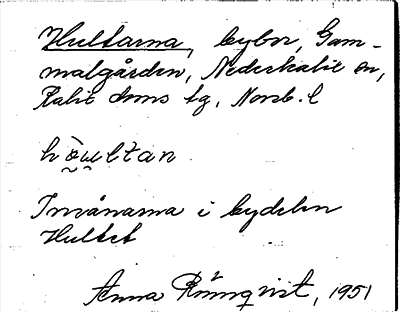 Hultarna, bybor, Gam-
malgården, Nederkalix sn,
Kalix doms tg, Norrb. l
hωu̯ltan
Invånarna i bydelen
Hultet
Anna Rönnqvist, 1951